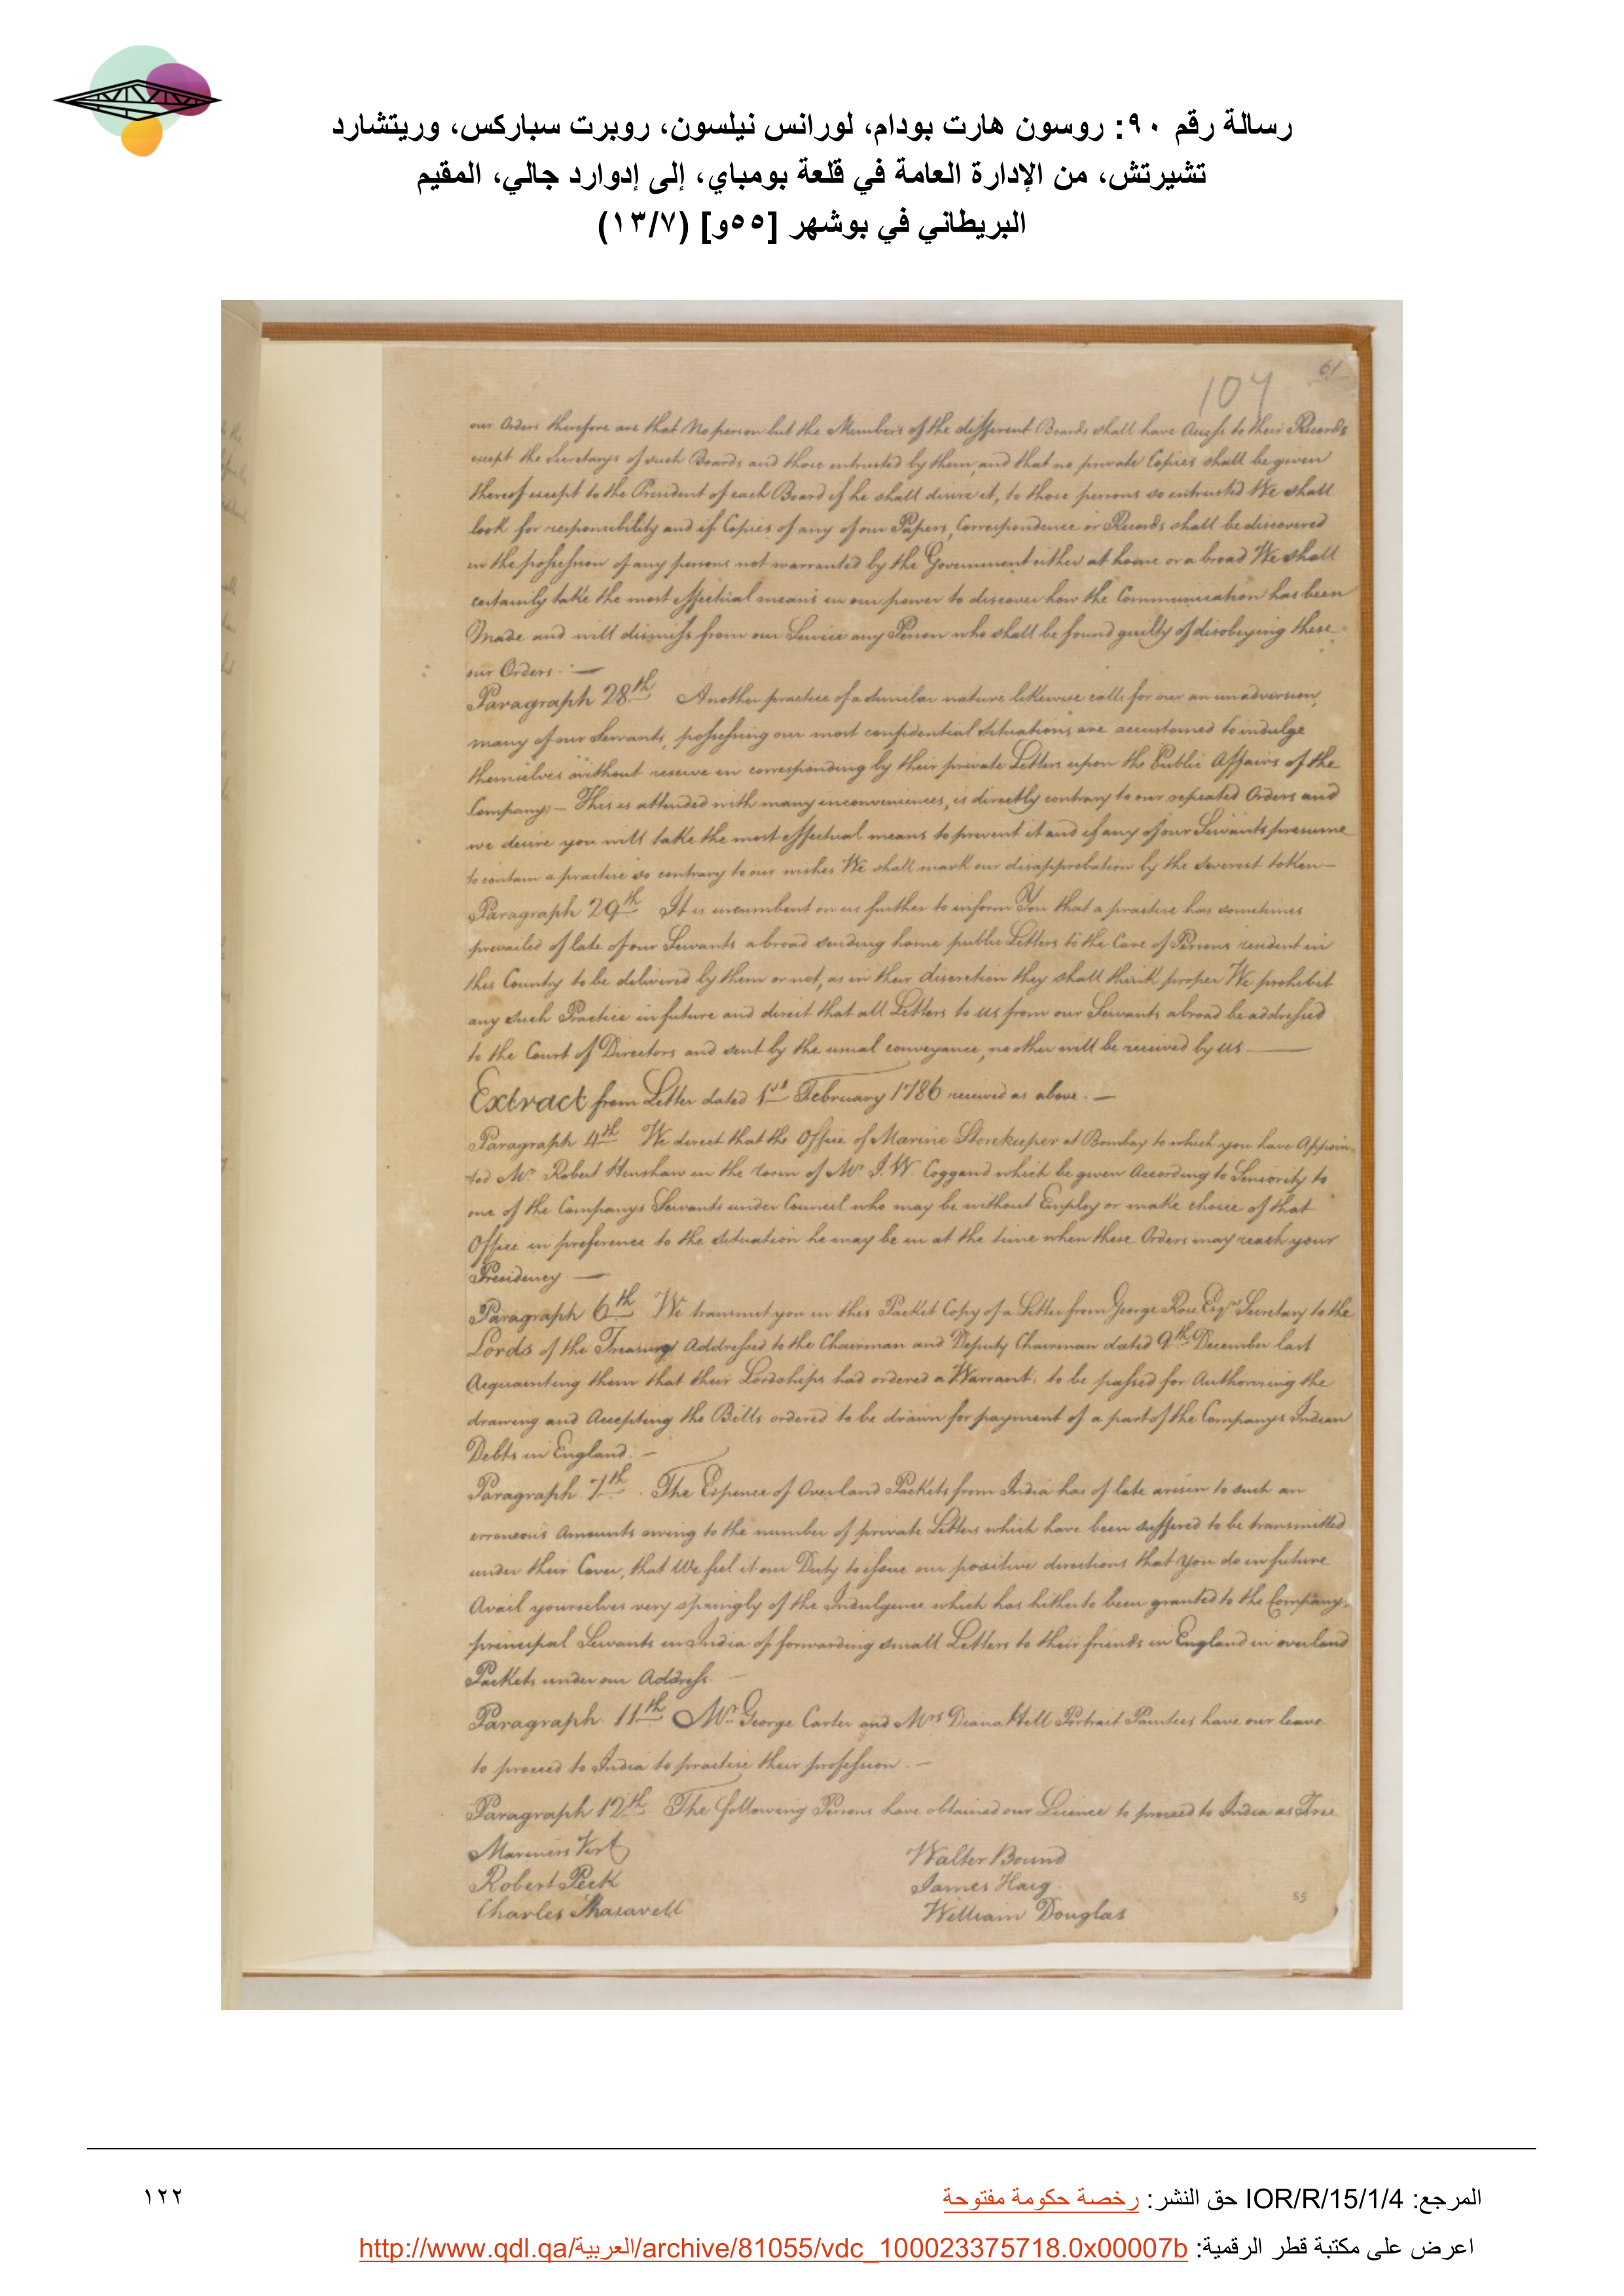 رسالة رقم ٩٠: روسون هارت بودام، لورانس نيلسون، روبرت سباركس، وريتشارد
تشيرتش، من الإدارة العامة في قلعة بومباي، إلى إدوارد جالي، المقيم
البريطاني في بوشهر [٥٥و] (١٣/٧)
61
107
our Orders therefore are that No person but the Members of the different Boards shall have Access to their Records
except the Secretarys of such Boards and those entrusted by them, and that no private Copies shall be given
thereof except to the President of each Board if he shall desire it, to those persons so entrusted We shall
look for responsibility and if Copies of any of our Papers, Correspondence or Records shall be discovered
in the possession of any persons not warranted by the Government either at home or abroad We shall
certainly take the most effectual means in our power to discover how the Communication has been
Made and will dismiss from our Service any Person who shall be found guilty of disobeying these
our Orders. —
Paragraph 28th Another practice of a similar nature likewise calls for our an unadversion,
many of our Servants, possessing our most confidential Situations are accustomed to indulge
themselves without reserve in corresponding by their private Letters upon the Public Affairs of the
Company; — This is attended with many inconveniences, is directly contrary to our repeated Orders and
we desire you will take the most effectual means to prevent it and if any of our Servants presume
to contain a practise so contrary to our wishes We shall mark our disapprobation by the severest token —
Paragraph 29th It is incumbent on us further to inform You that a practise has sometimes
prevailed of late of our Servants abroad sending home public Letters to the Care of Persons resident in
this Country to be delivered by them or not, as in their discretion they shall think proper We prohibit
any such Practice in future and direct that all Letters to us from our Servants abroad be addressed
to the Court of Directors and sent by the usual conveyance, no other will be received by us —
Extract from Letter dated 1st February 1786 received as above. —
Paragraph 4th We direct that the Office of Marine Storekeeper at Bombay to which you have Appoin-
ted Mr Robert Henshaw in the room of Mr I. W. Coggand which be given According to Seniority to
one of the Companys Servants under Council who may be without Employ or make choice of that
Office in preference to the situation he may be in at the time when these Orders may reach your
Presidency —
Paragraph 6th We transmit you in this Packet Copy of a Letter from George Rose Esqr Secretary to the
Lords of the Treasury Addressed to the Chairman and Deputy Chairman dated 9th December last
Acquainting them that their Lordships had ordered a Warrant, to be passed for Authorising the
drawing and Accepting the Bills ordered to be drawn for payment of a part of the Companys Indian
Debts in England. —
Paragraph 7th. The Expence of Overland Packets from India has of late arisen to such an
erroneous Amounts owing to the number of private Letters which have been suffered to be transmitted
under their Cover, that We feel it our Duty to issue our positive directions that You do in future
Avail yourselves very sparingly of the Indulgence which has hitherto been granted to the Companys
principal Servants in India of forwarding small Letters to their friends in England in overland
Packets under our Address. —
Paragraph 11th Mr George Carter and Mrs Diana Hill Portrait Painters have our leave
to proceed to India to practise their profession. —
Paragraph 12th. The following Persons have obtained our Licence to proceed to India as Free
Mariners Vizt Walter Bound
Robert Peck James Haig
Charles William Douglas
55
المرجع: IOR/R/15/1/4 حق النشر: رخصة حكومة مفتوحة
١٢٢
اعرض على مكتبة قطر الرقمية: http://www.qdl.qa/العربية/archive/81055/vdc_100023375718.0x00007b